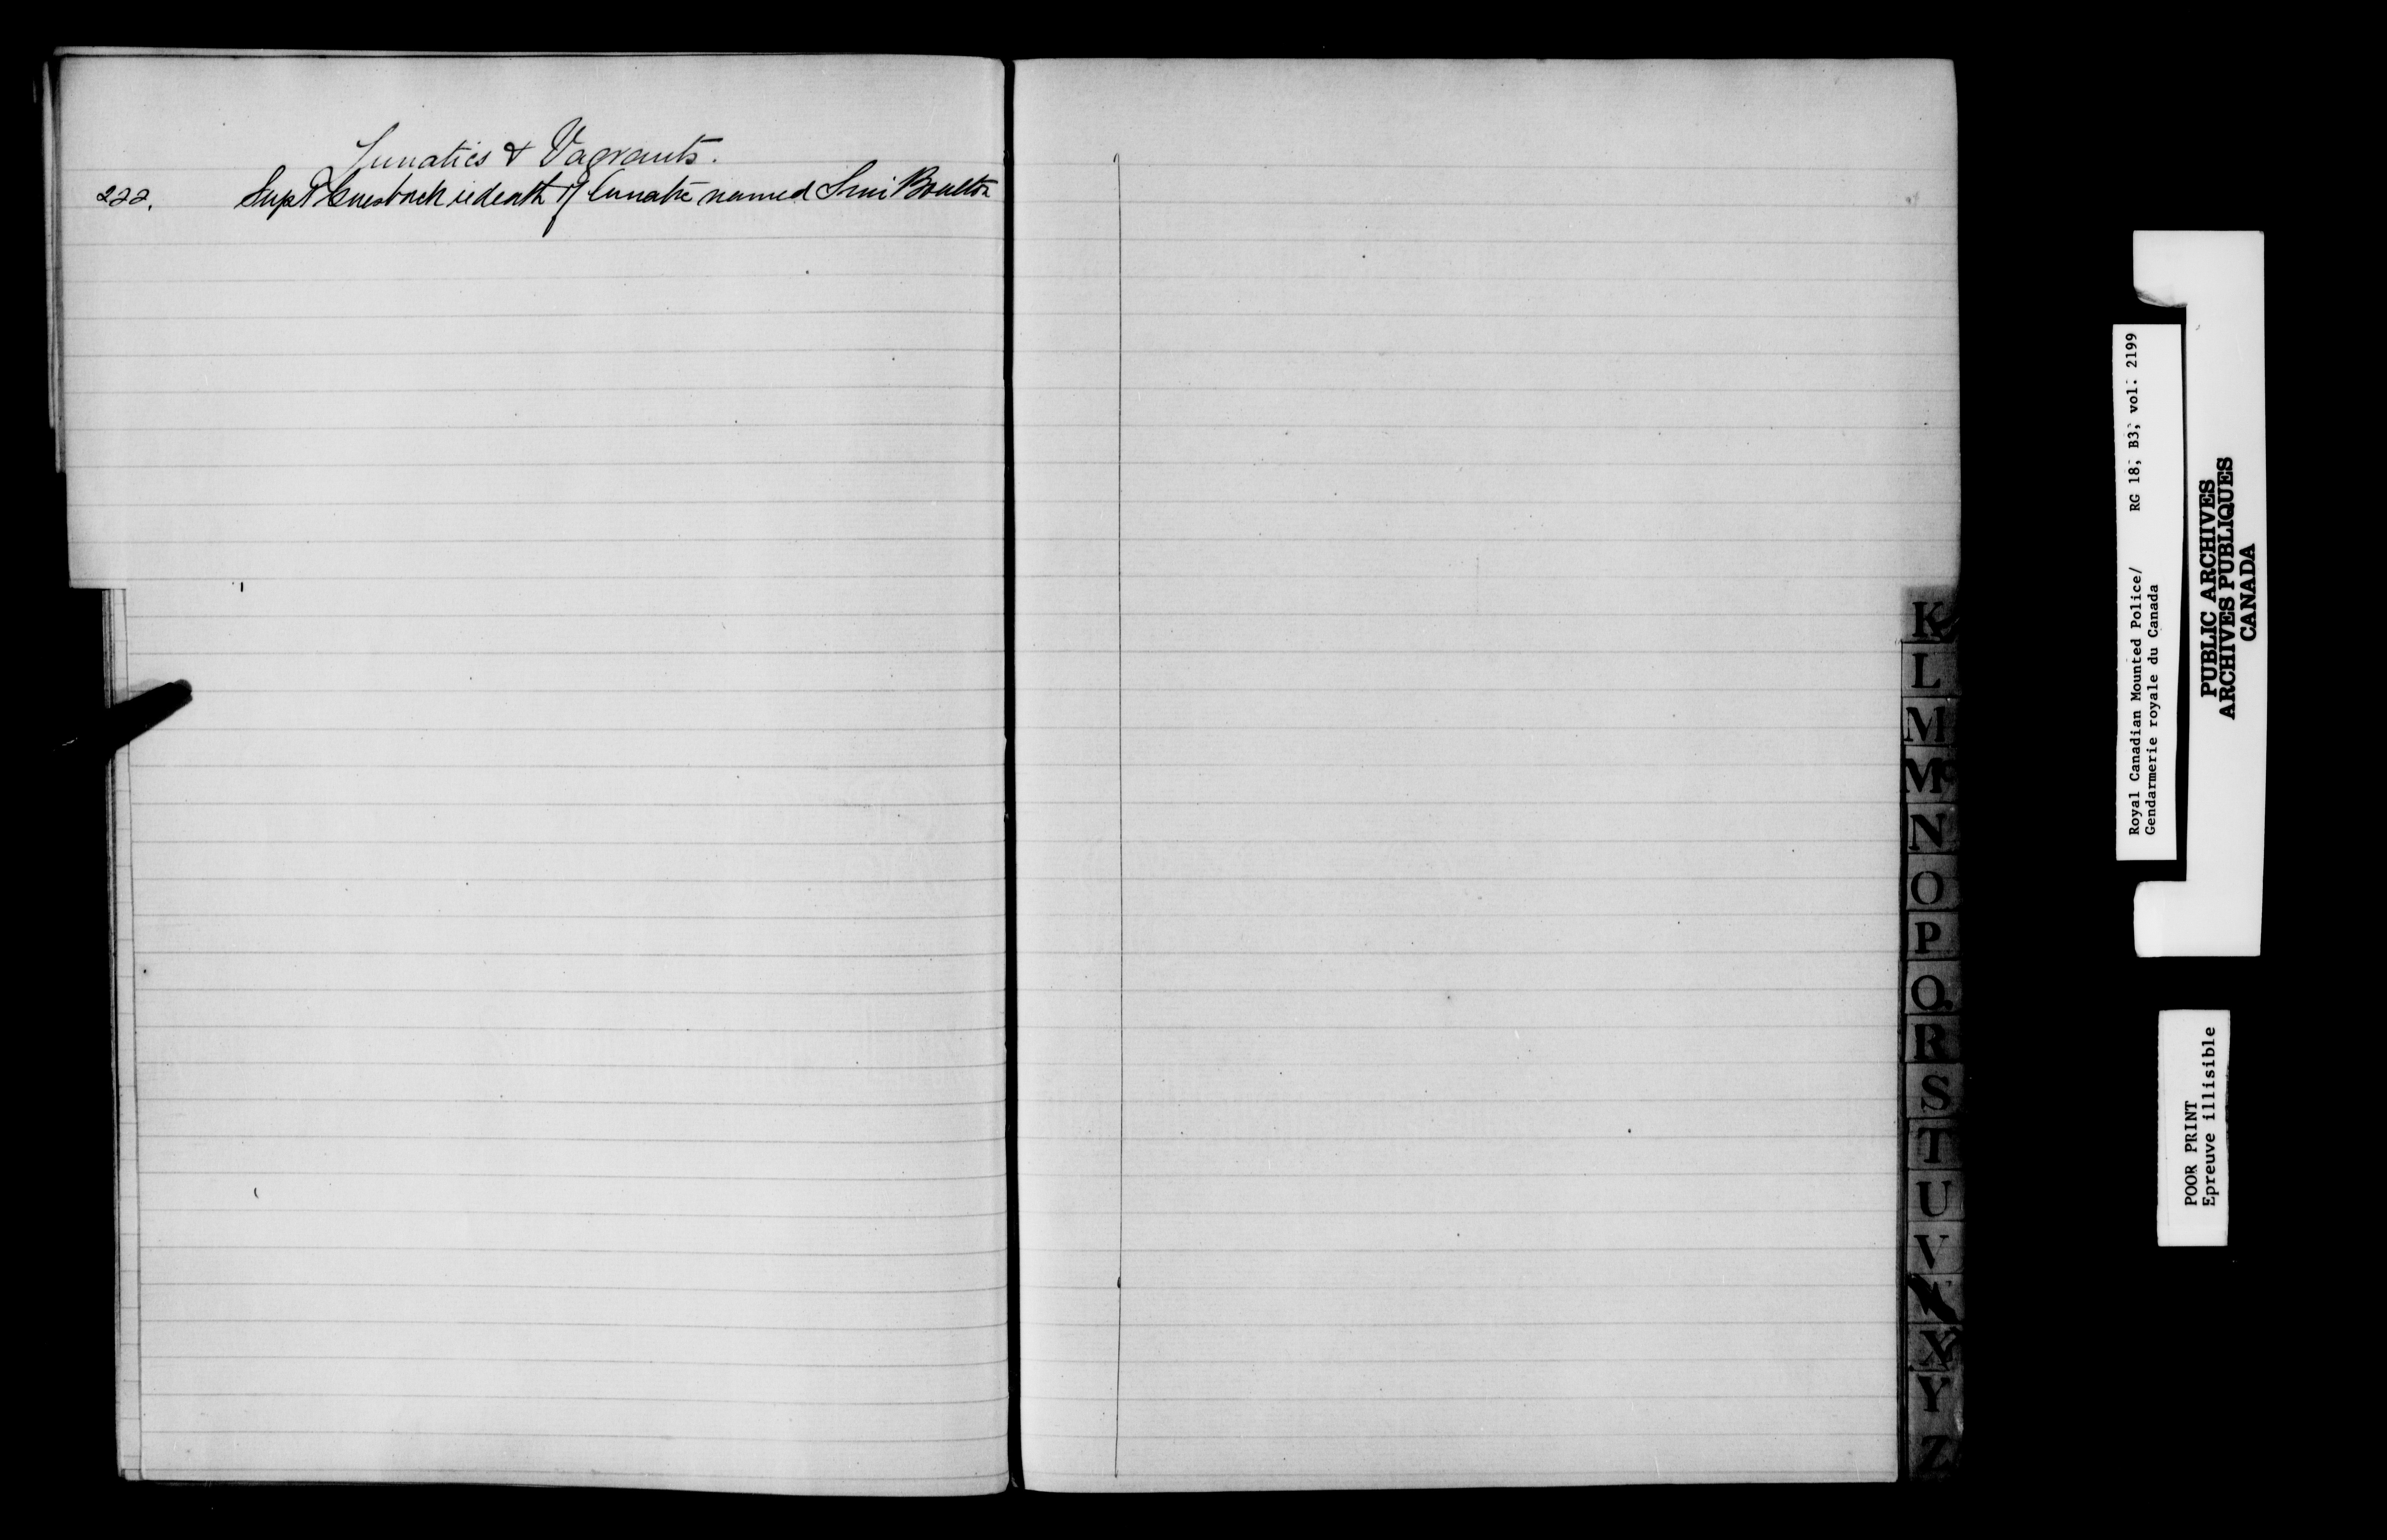 Lunatics & Vagrants.
222. Supt Griesbach re death of lunatic named Boulton
K
L
M
Mc
N
O
P
Q
R
S
T
U
V
X
Y
Z
Royal Canadian Mounted Police/ RG 18; B3; vol: 2199
Gendarmerie royale du Canada
PUBLIC ARCHIVES
ARCHIVES PUBLIQUES
CANADA
POOR PRINT
Epreuve illisible